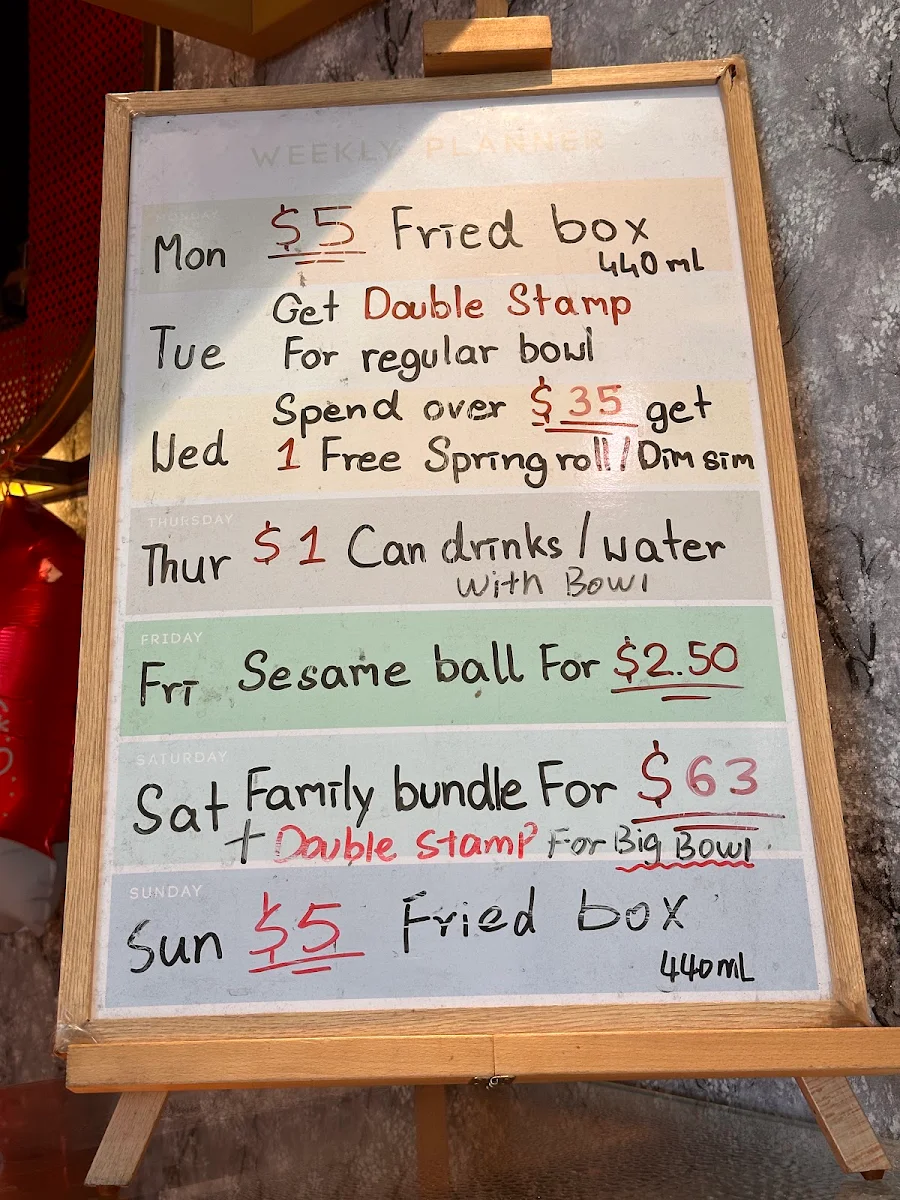 WEEKLY PLANNER
MONDAY
Mon $5 Fried box
440 mL
Get Double Stamp
Tue For regular bowl
Spend over $35 get
Wed 1 Free Spring roll / Dim sim
THURSDAY
Thur $1 Can drinks / water
With Bowl
FRIDAY
Fri Sesame ball For $2.50
SATURDAY
Sat Family bundle For $63
+ Double Stamp For Big Bowl
SUNDAY
Sun $5 Fried box
440mL